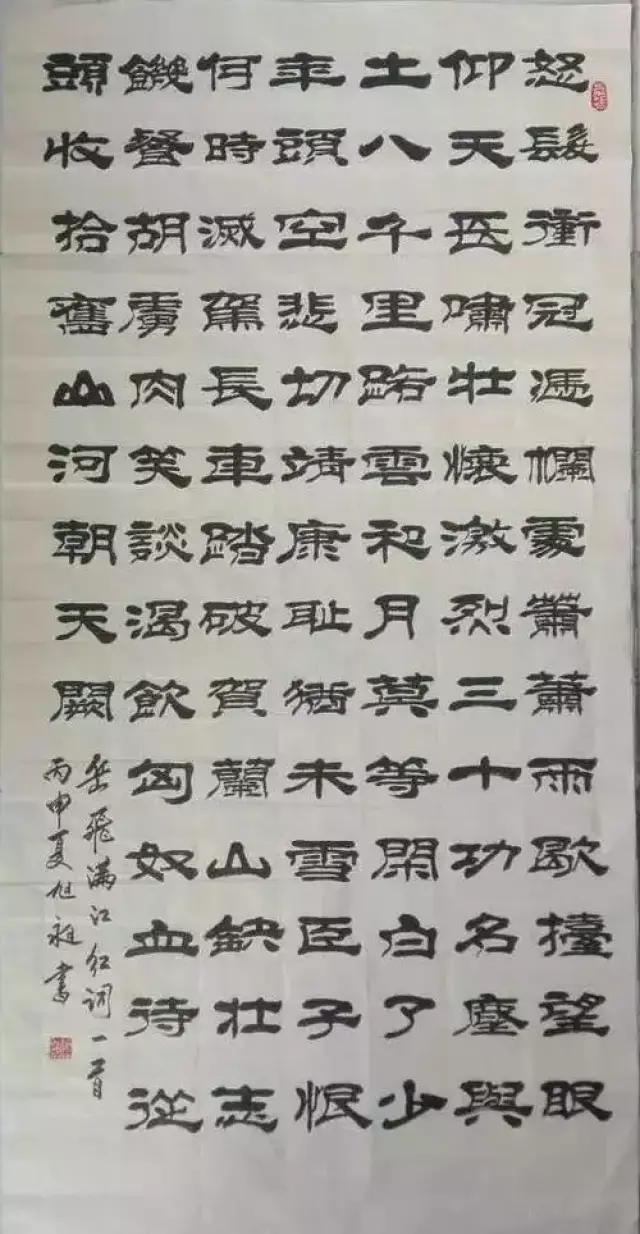 怒髮衝冠憑欄處蕭蕭雨歇擡望眼
仰天長嘯壯懷激烈三十功名塵與
土八千里路雲和月莫等閑白了少
年頭空悲切靖康耻猶未雪臣子恨
何時滅駕長車踏破賀蘭山缺壯志
饑餐胡虜肉笑談渴飲匈奴血待從
頭收拾舊山河朝天闕
岳飛满江红词一首
丙申夏旭書